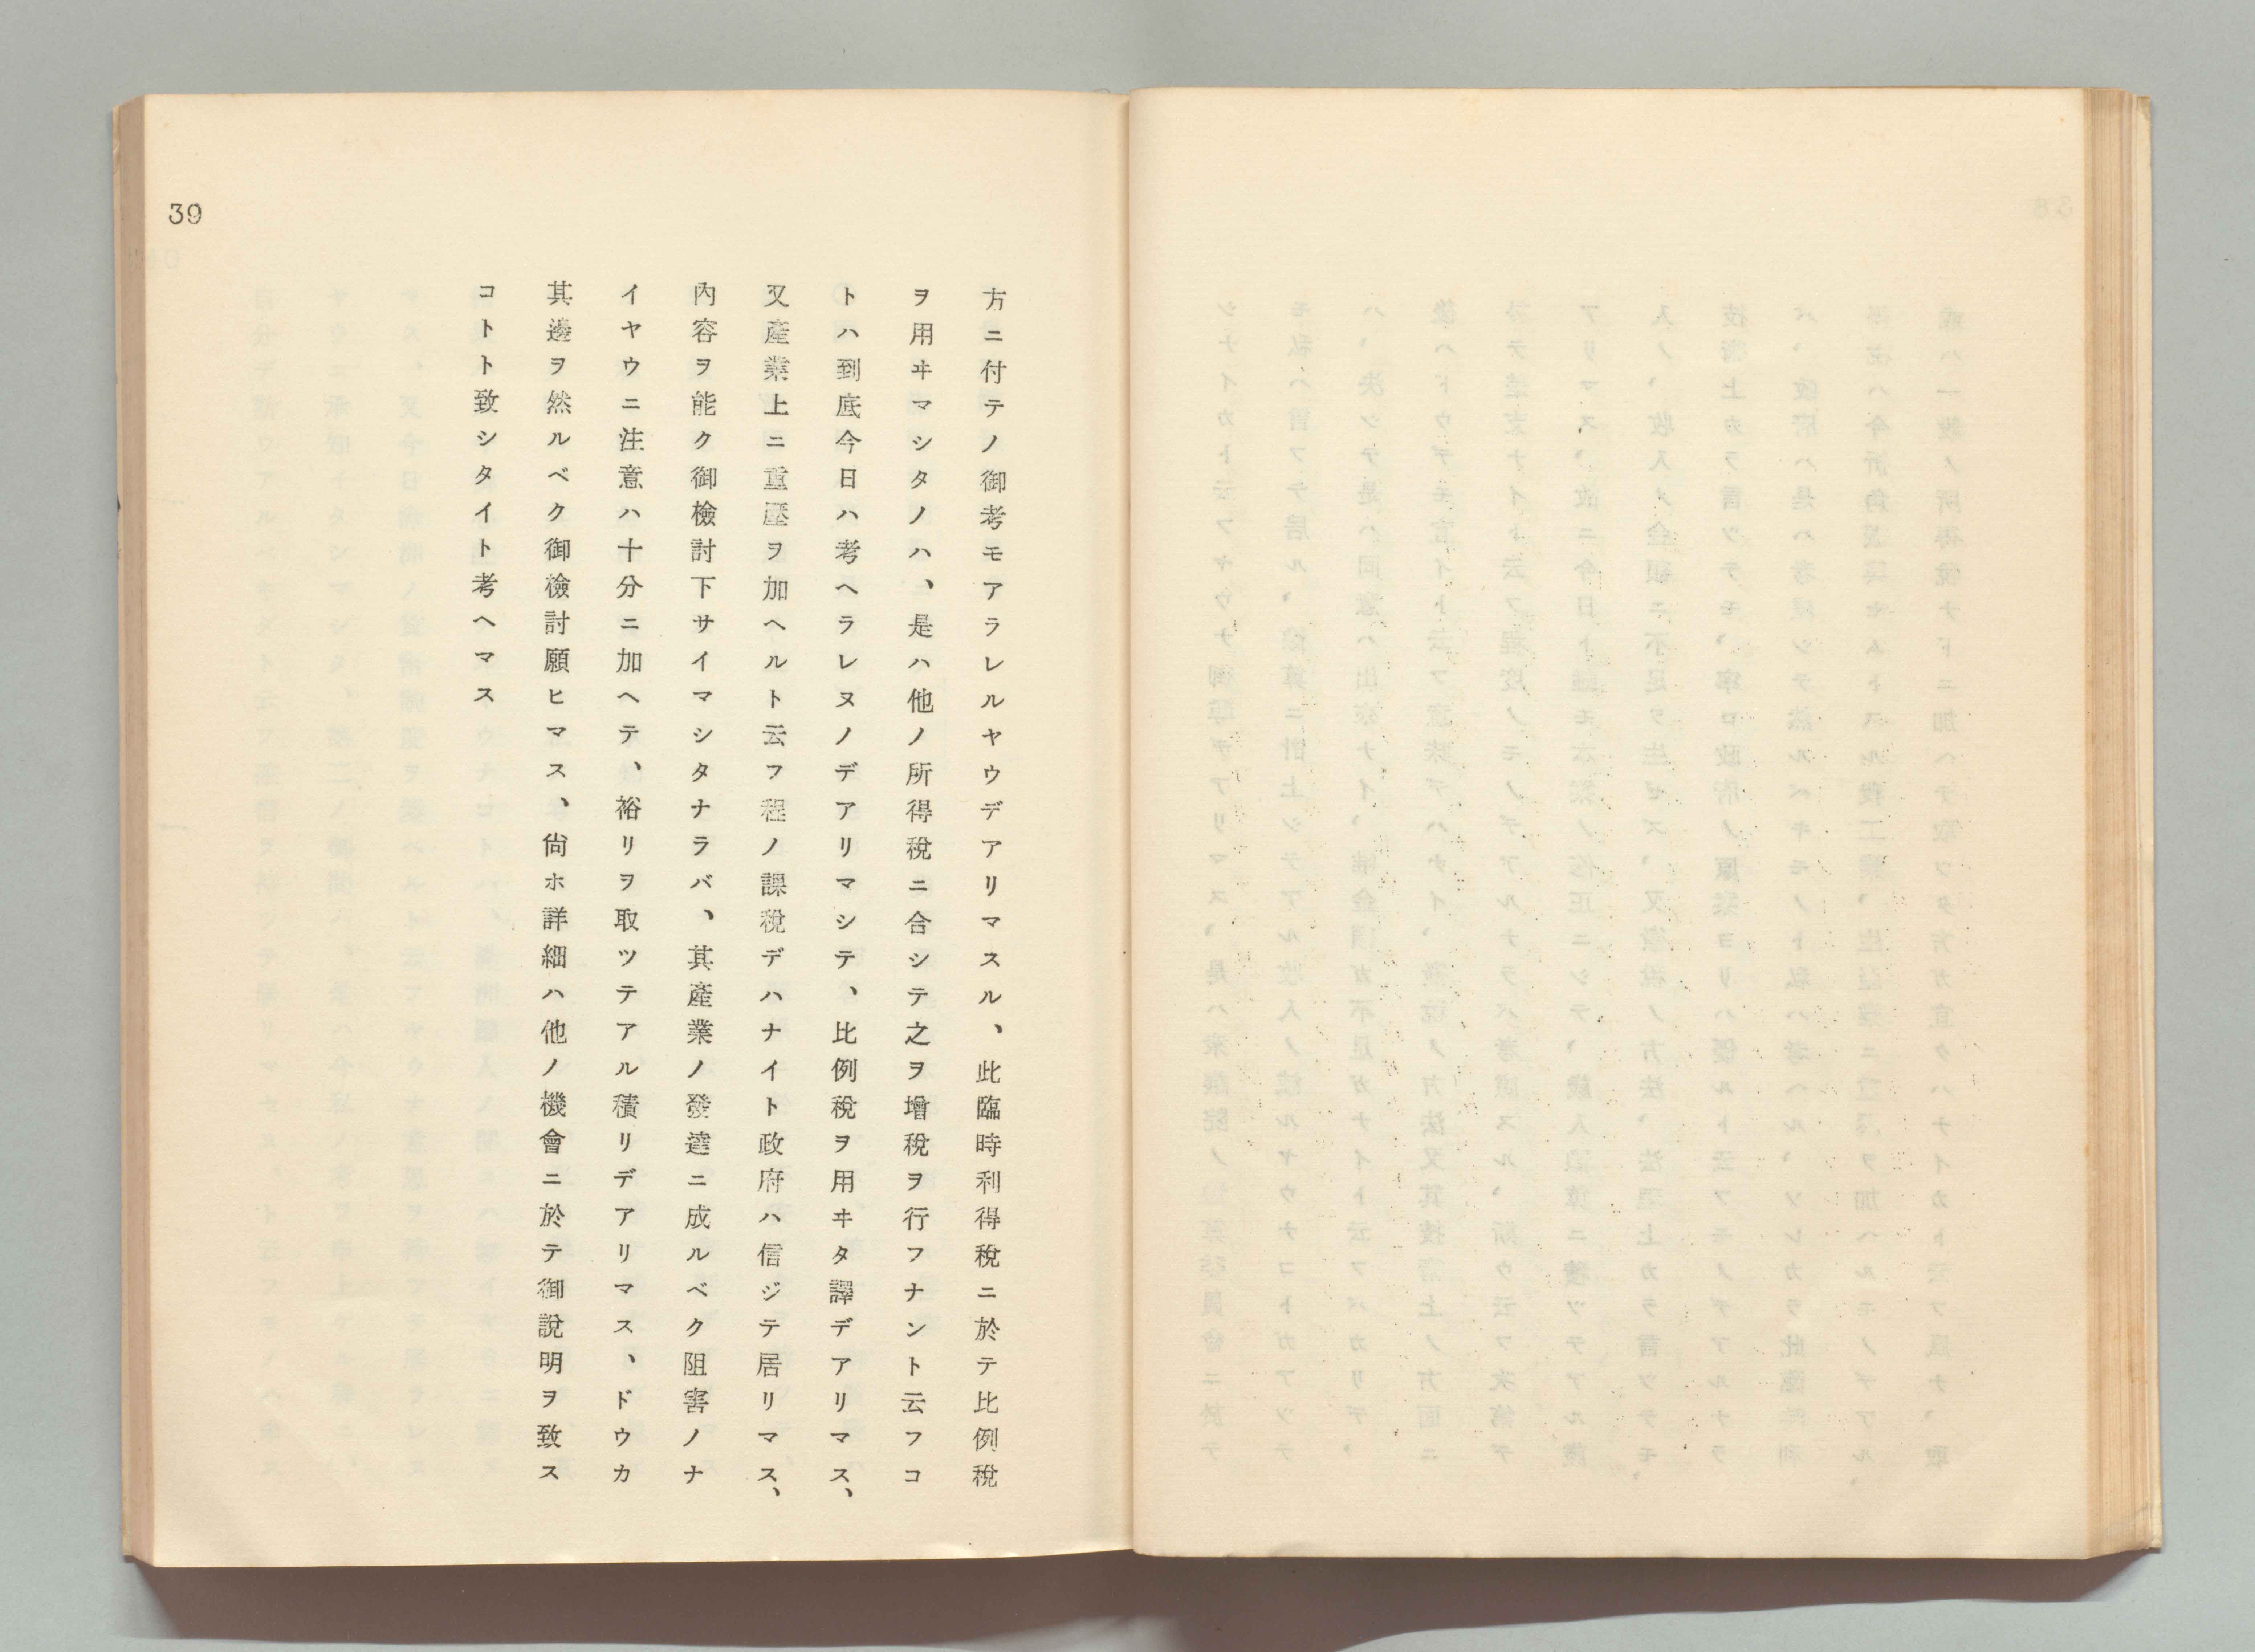 39
方ニ付テノ御考モアラレルヤウデアリマスル、此臨時利得稅ニ於テ比例稅
ヲ用ヰマシタノハ、是ハ他ノ所得稅ニ合シテ之ヲ增稅ヲ行フナント云フコ
トハ到底今日ハ考ヘラレヌノデアリマシテ、比例稅ヲ用ヰタ譯デアリマス、
又產業上ニ重壓ヲ加ヘルト云フ程ノ課稅デハナイト政府ハ信ジテ居リマス、
內容ヲ能ク御檢討下サイマシタナラバ、其產業ノ發達ニ成ルベク阻害ノナ
イヤウニ注意ハ十分ニ加ヘテ、裕リヲ取ツテアル積リデアリマス、ドウカ
其邊ヲ然ルベク御檢討願ヒマス、尙ホ詳細ハ他ノ機會ニ於テ御說明ヲ致ス
コトト致シタイト考ヘマス